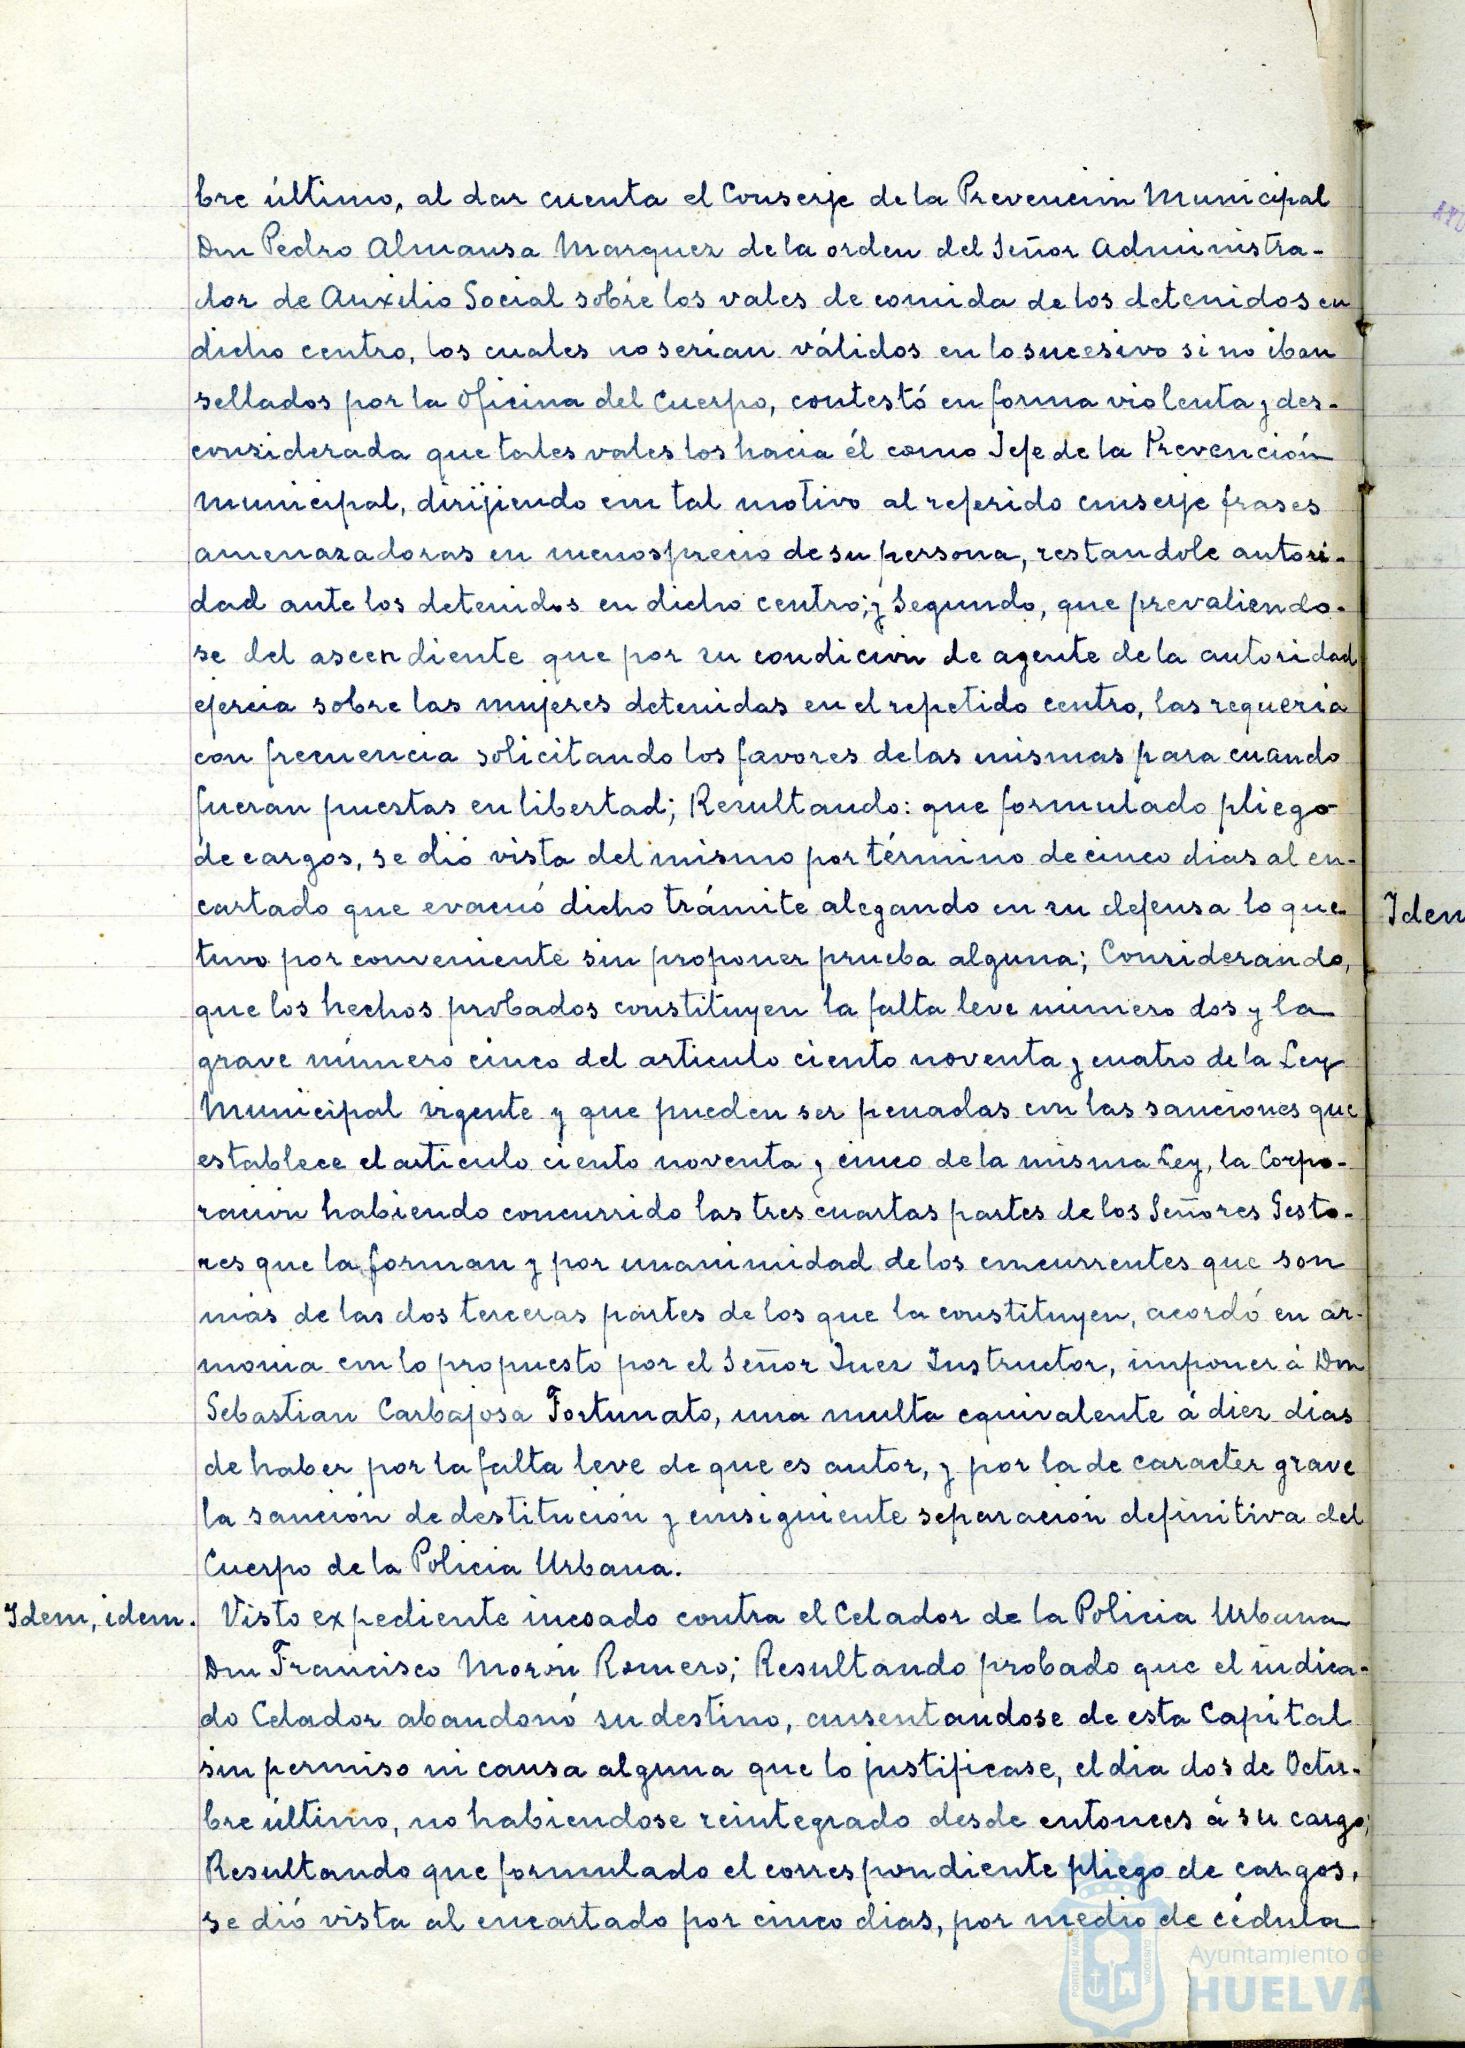 bre último, al dar cuenta el Conserje de la Prevención Municipal
Don Pedro Almansa Marquez de la orden del Señor Administra-
dor de Auxilio Social sobre los vales de comida de los detenidos en
dicho centro, los cuales no serían válidos en lo sucesivo si no iban
sellados por la Oficina del Cuerpo, contestó en forma violenta y des-
considerada que tales vales los hacia él como Jefe de la Prevención
Municipal, dirijiendo con tal motivo al referido conserje frases
amenazadoras en menosprecio de su persona, restandole autori-
dad ante los detenidos en dicho centro; y Segundo, que prevaliendo-
se del ascendiente que por su condicion de agente de la autoridad
ejercia sobre las mujeres detenidas en el repetido centro, las requeria
con frecuencia solicitando los favores de las mismas para cuando
fueran puestas en libertad; Resultando: que formulado pliego
de cargos, se dió vista del mismo por término de cinco dias al en-
cartado que evacuó dicho trámite alegando en su defensa lo que
tuvo por conveniente sin proponer prueba alguna; Considerando,
que los hechos probados constituyen la falta leve número dos y la
grave número cinco del articulo ciento noventa y cuatro de la Ley
Municipal vigente y que pueden ser penadas con las sanciones que
establece el articulo ciento noventa y cinco de la misma Ley, la Corpo-
racion habiendo concurrido las tres cuartas partes de los Señores Gesto-
res que la forman y por unanimidad de los concurrentes que son
más de las dos terceras partes de los que la constituyen, acordó en ar-
monia con lo propuesto por el Señor Juez Instructor, imponer á Don
Sebastian Carbajosa Fortunato, una multa equivalente á diez dias
de haber por la falta leve de que es autor, y por la de caracter grave
la sanción de destitución y consiguiente separación definitiva del
Cuerpo de la Policia Urbana.
Idem, idem. Visto expediente incoado contra el Celador de la Policia Urbana
Don Francisco Morón Romero; Resultando probado que el indica-
do Celador abandonó su destino, ausentandose de esta Capital
sin permiso ni causa alguna que lo justificase, el dia dos de Octu-
bre último, no habiendose reintegrado desde entonces á su cargo;
Resultando que formulado el correspondiente pliego de cargos,
se dió vista al encartado por cinco dias, por medio de cédula
Idem
Ayuntamiento de
HUELVA